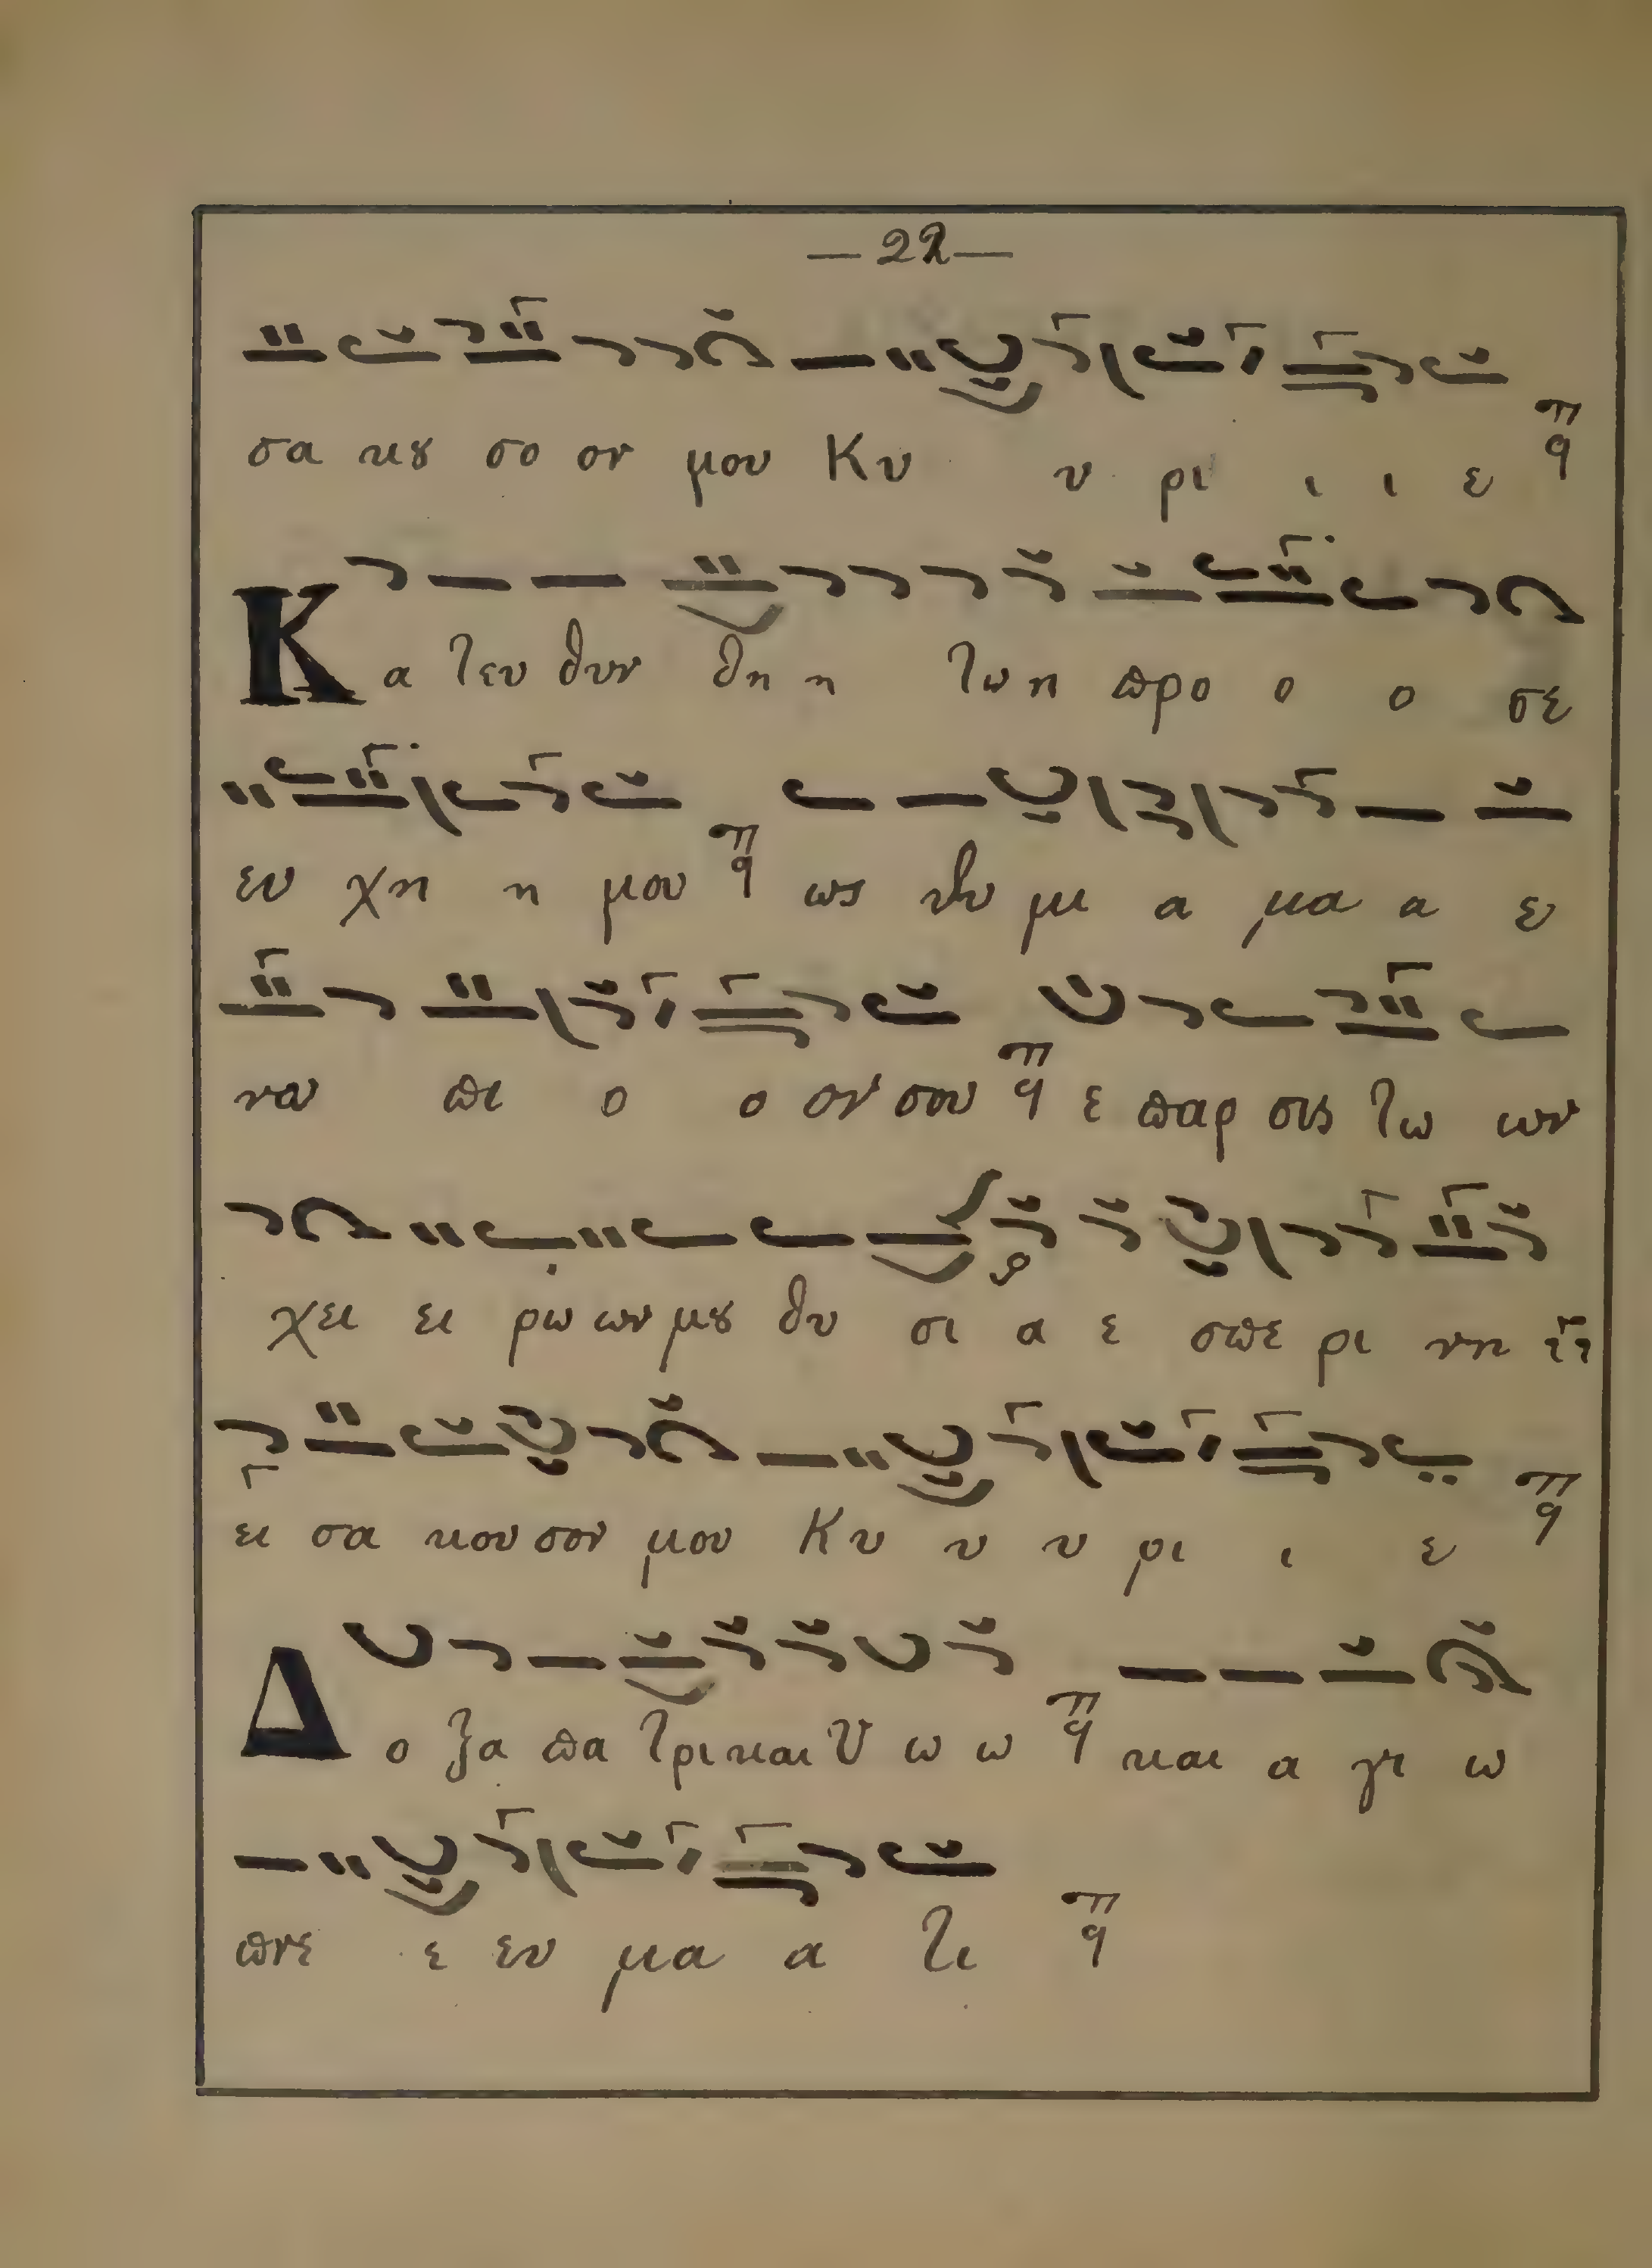 —22—
σα κȣ σο ον μου Κυ υ ρι ι ι ε
Κα τευ θυν θη η τω η προ ο ο σε
ευ χη η μου ως θυ μι α μα α ε
νω πι ο ο ον σου ε παρ σις τω ων
χει ει ρω ων μȣ θυ σι α ε σπε ρι νη
ει σα κου σον μου Κυ υ υ ρι ι ε
Δο ξα πα τρι και Υ ω ω και α γι ω
πνε ε ευ μα α τι